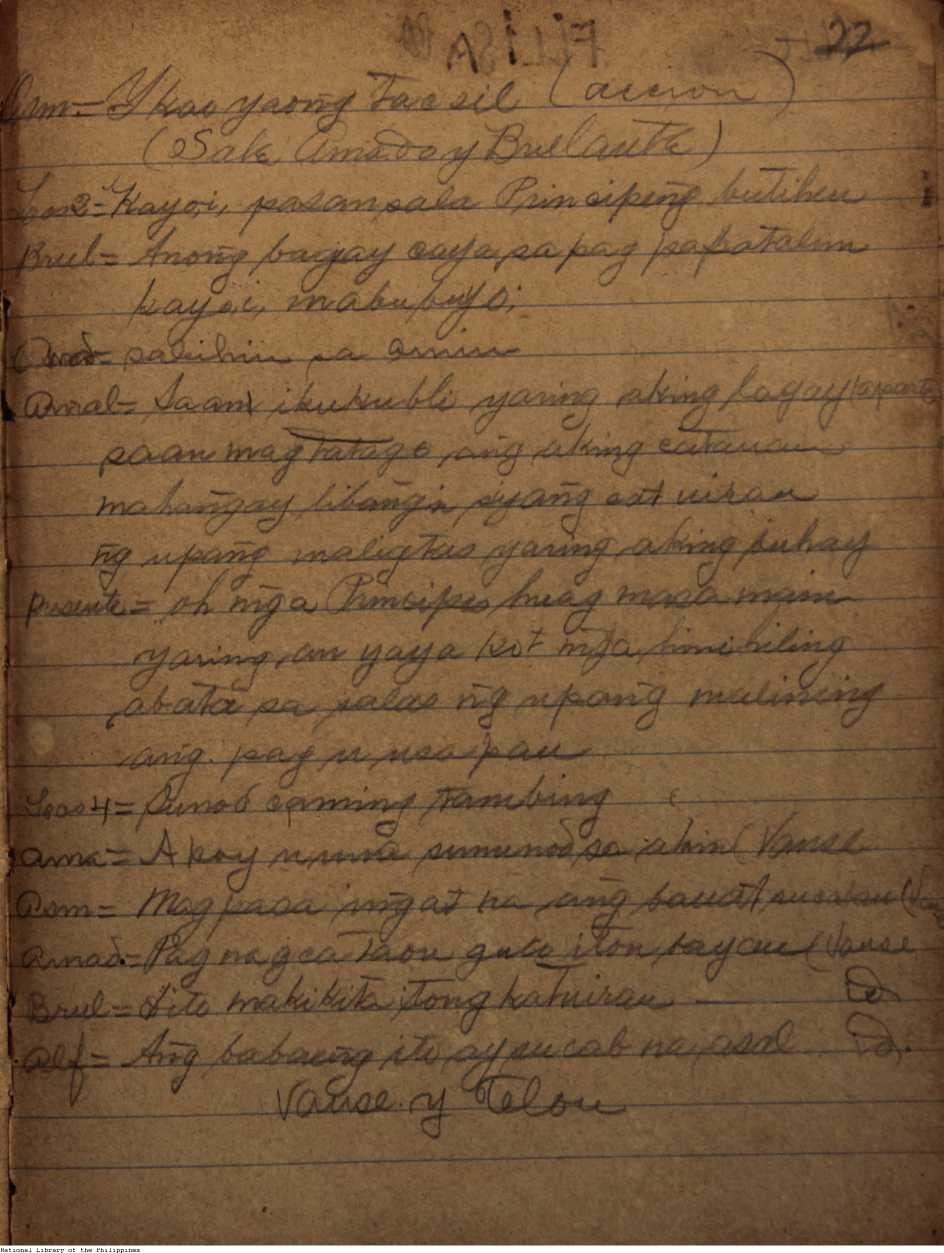 22
Osm = Ykao yaong tacsil (accion)
(Sale Amado y Brulante)
Los 2 = Kayo,i, pasan sala Principeng butihin
Brul = Anong bagay caya sa pag papatalim
kayo,i, mabubuyo,
Amad = sabihin sa amin
Amal = Saan ikukubli yaring aking lagay (aparte
saan magtatago ang aking catauan
mahangay libangin siyang catuiran
ng upang maligtas yaring aking buhay
Presente = oh mga Principes huag masamain
yaring an yaya ko,t mga hinihiling
abata sa salas ng upang malining
ang pag u usapan
Los 4 = Sunod caming tambing
Ama = Akoy ununa sumunod sa akin (Vanse
Osm = Magpasa ingat na ang bauat susuan
Amad = Pag nagca taon guto iton bayan (Vanse
Brul = dito makikita itong katuiran — Id
Alf = Ang babaeng ito ay sucab na asal Id.
Vanse y Telon
National Library of the Philippines